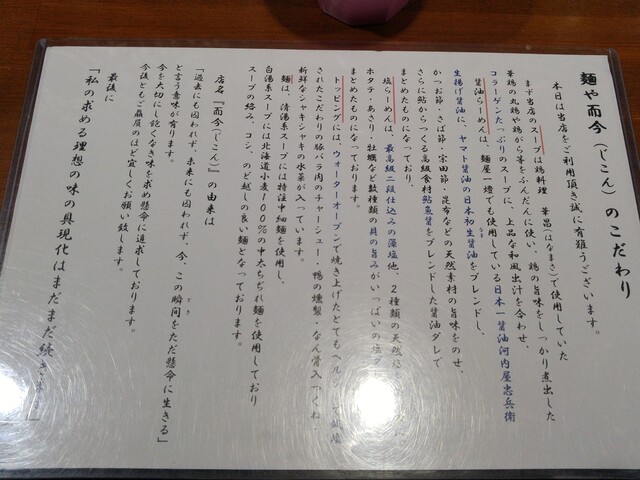 麺や而今(じこん)のこだわり
本日は当店をご利用頂き誠に有難うございます。
まず当店のスープは鶏料理 華昌(はなまさ)で使用していた
華鶏の丸鶏や鶏がら等をふんだんに使い、鶏の旨味をしっかり煮出した
コラーゲンたっぷりのスープに、上品な和風出汁を合わせ、
醤油らーめんは、麺屋一燈でも使用している日本一醤油河内屋忠兵衛
生揚げ醤油に、ヤマト醤油の日本初生醤油をブレンドし、
なま
かつお節・さば節・宗田節・昆布などの天然素材の旨味をのせ、
さらに鮎からつくる高級食材鮎魚醤をブレンドした醤油ダレで
まとめたものになっており、
塩らーめんは、最高級二段仕込みの藻塩他、2種類の天然
ホタテ・あさり・牡蠣など数種類の貝の旨みがいっぱいの塩
まとめたものになっております。
トッピングには、ウォーターオーブンで焼き上げたとてもヘルシー
されたこだわりの豚バラ肉のチャーシュー・鴨の燻製・なん骨入つくね・
新鮮なシャキシャキの水菜が入っています。
麺は、清湯系スープには特注中細麺を使用し、
白湯系スープには北海道小麦100%の中太ちぢれ麺を使用しており
スープの絡み、コシ、のど越しの良い麺となっております。
店名『而今(じこん)』の由来は
「過去にも囚われず、未来にも囚われず、今、この瞬間をただ懸命に生きる」
とき
と言う意味が有ります。
今を大切にし飽くなき味を求め懸命に追求しております。
今後ともご贔屓のほど宜しくお願い致します。
最後に
「私の求める理想の味の具現化はまだまだ続き